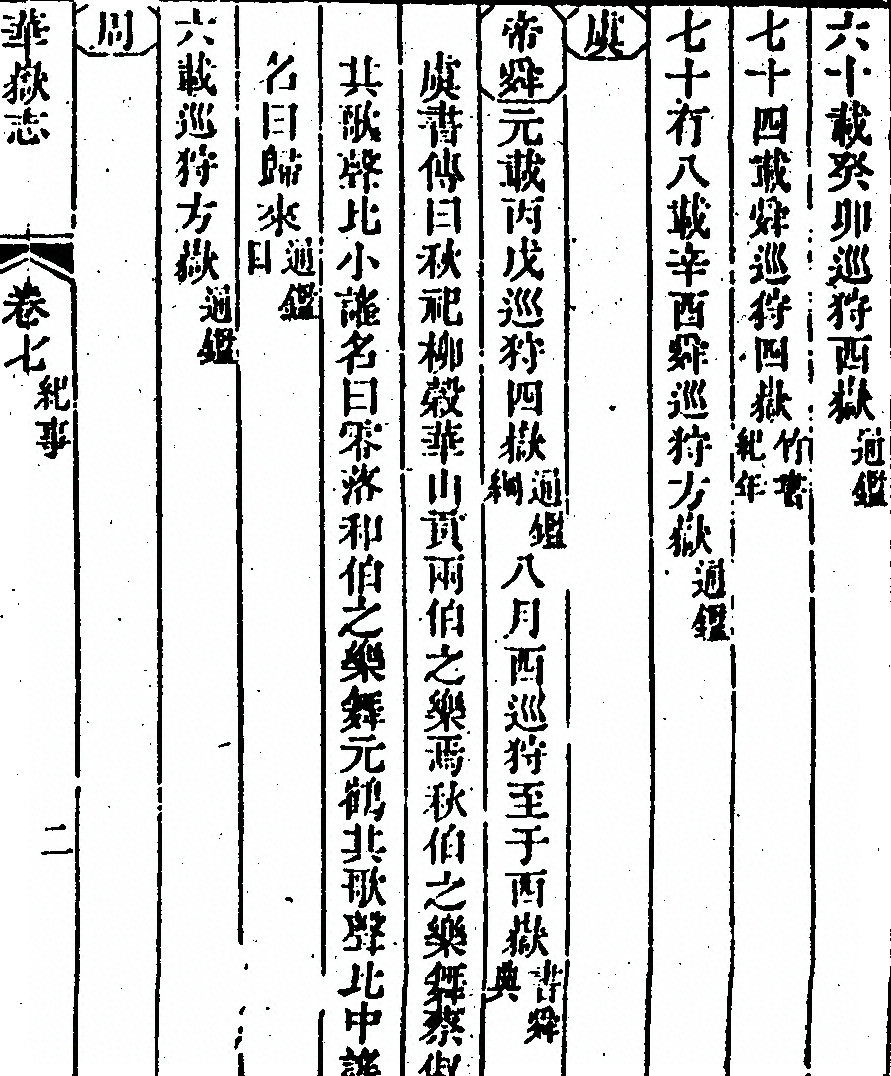 六十載癸卯巡狩西嶽通鑑
七十四載舜巡狩四嶽竹書紀年
七十有八載辛酉舜巡狩方嶽通鑑
虞
帝舜元載丙戌巡狩四嶽通鑑綱八月西巡狩至于西嶽書舜典
虞書傳曰秋祀柳穀華山貢兩伯之樂焉秋伯之樂舞蔡俶
其歌聲比小謠名曰零落和伯之樂舞元鶴其歌聲比中謠
名曰歸來通鑑目
六載巡狩方嶽通鑑
周
華嶽志 卷七 紀事 二